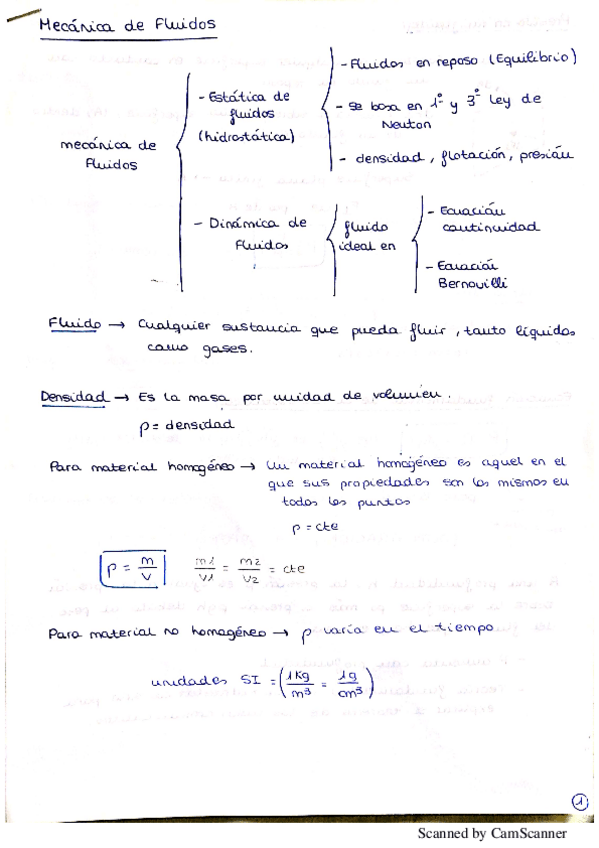 Mecánica de Fluidos
mecánica de Fluidos
- Estática de fluidos (hidrostática)
- Fluidos en reposo (Equilibrio)
- se basa en 1º y 3º ley de Newton
- densidad, flotación, presión
- Dinámica de Fluidos
fluido ideal en
- Ecuación continuidad
- Ecuación Bernouilli
Fluido → Cualquier sustancia que pueda fluir, tanto líquidos
como gases.
Densidad → Es la masa por unidad de volumen.
ρ = densidad
Para material homogéneo → Un material homogéneo es aquel en el
que sus propiedades son los mismos en
todos los puntos
ρ = cte
ρ = m/v   m1/v1 = m2/v2 = cte
Para material no homogéneo → ρ varía en el tiempo
unidades SI = (1Kg/m³ = 1g/cm³)
1
Scanned by CamScanner